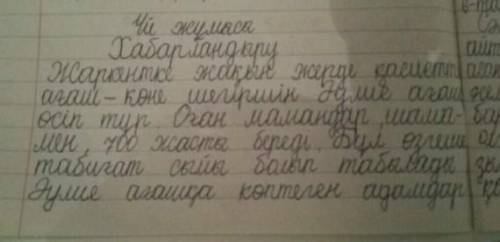 Үй жұмысы
Хабарландыру
Жаркентке жақын жерде қасиетті
ағаш - көне шегіршін Әулие ағаш
өсіп тұр. Оған мамандар шама-
мен, 700 жасты береді. Бұл өзгеше
табиғат сыйы болып табылады
Әулие ағашқа көптеген адамдар